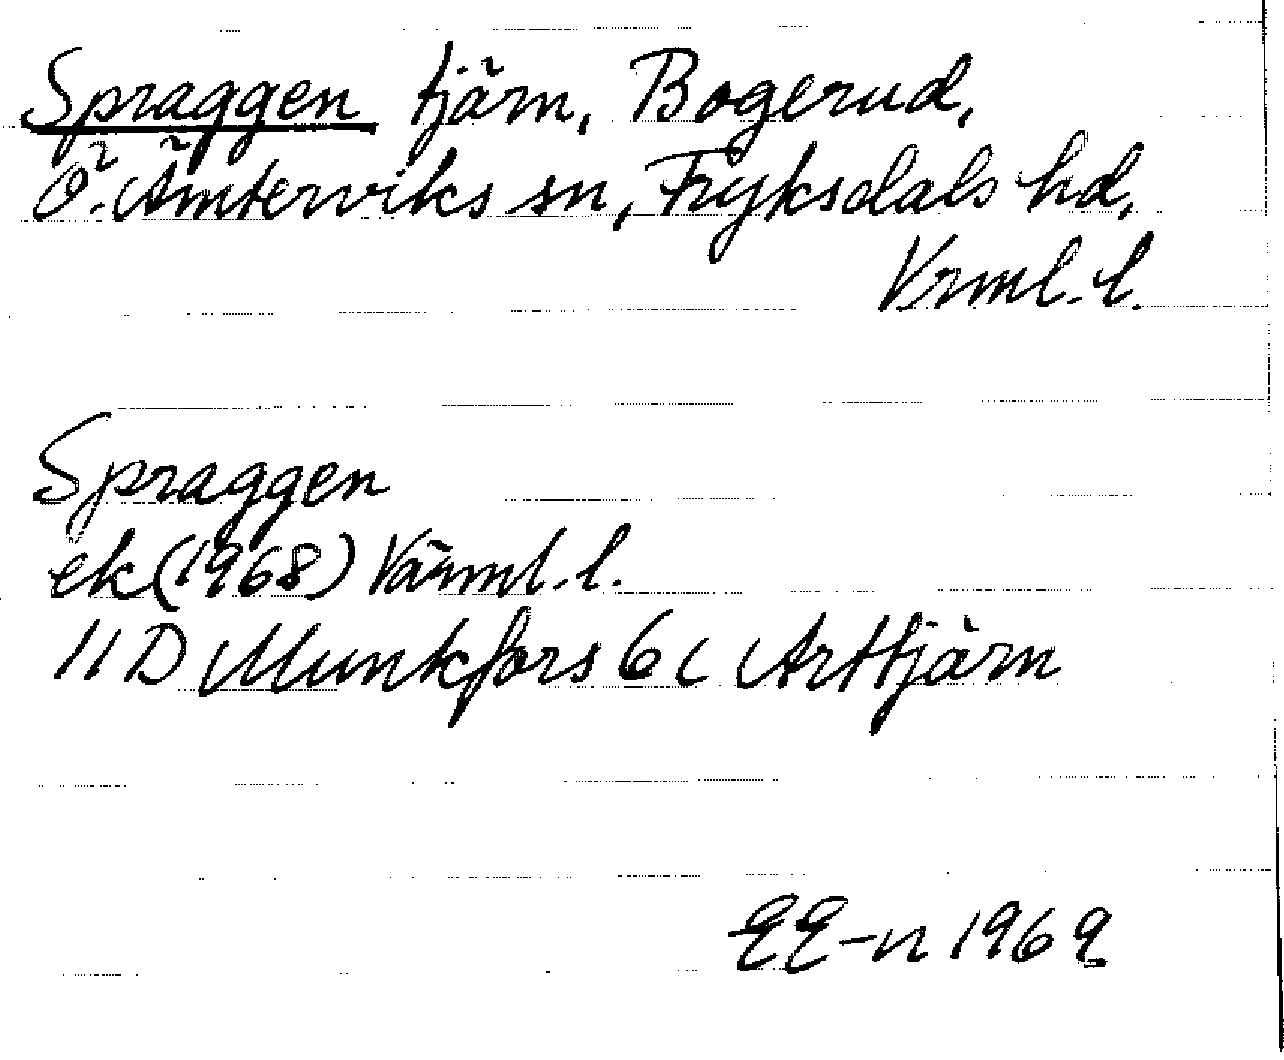 Spraggen tjärn, Bogerud,
Ö. Ämterviks sn, Fryksdals hd,
Vrml. l.
Spraggen
ek (1968) Värml. l.
11 D Munkfors 6 c Arttjärn
EE-n 1969